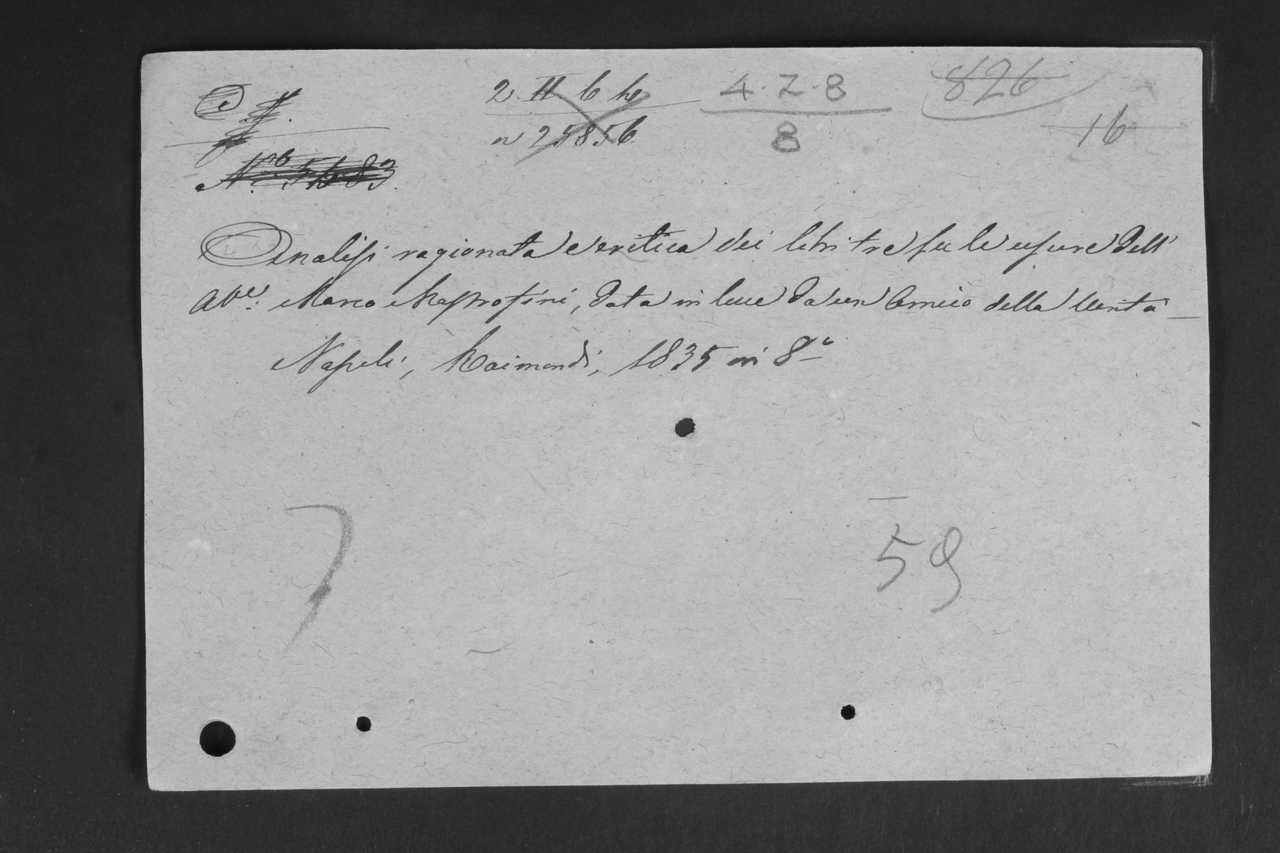 4·7·8 826
8 16
Analisi ragionata e critica dei libri tre su le usure dell'
Ab.e Marco Mastrofini, data in luce da un Amico della verità
Napoli, Raimondi, 1835 in 8.o
7 59